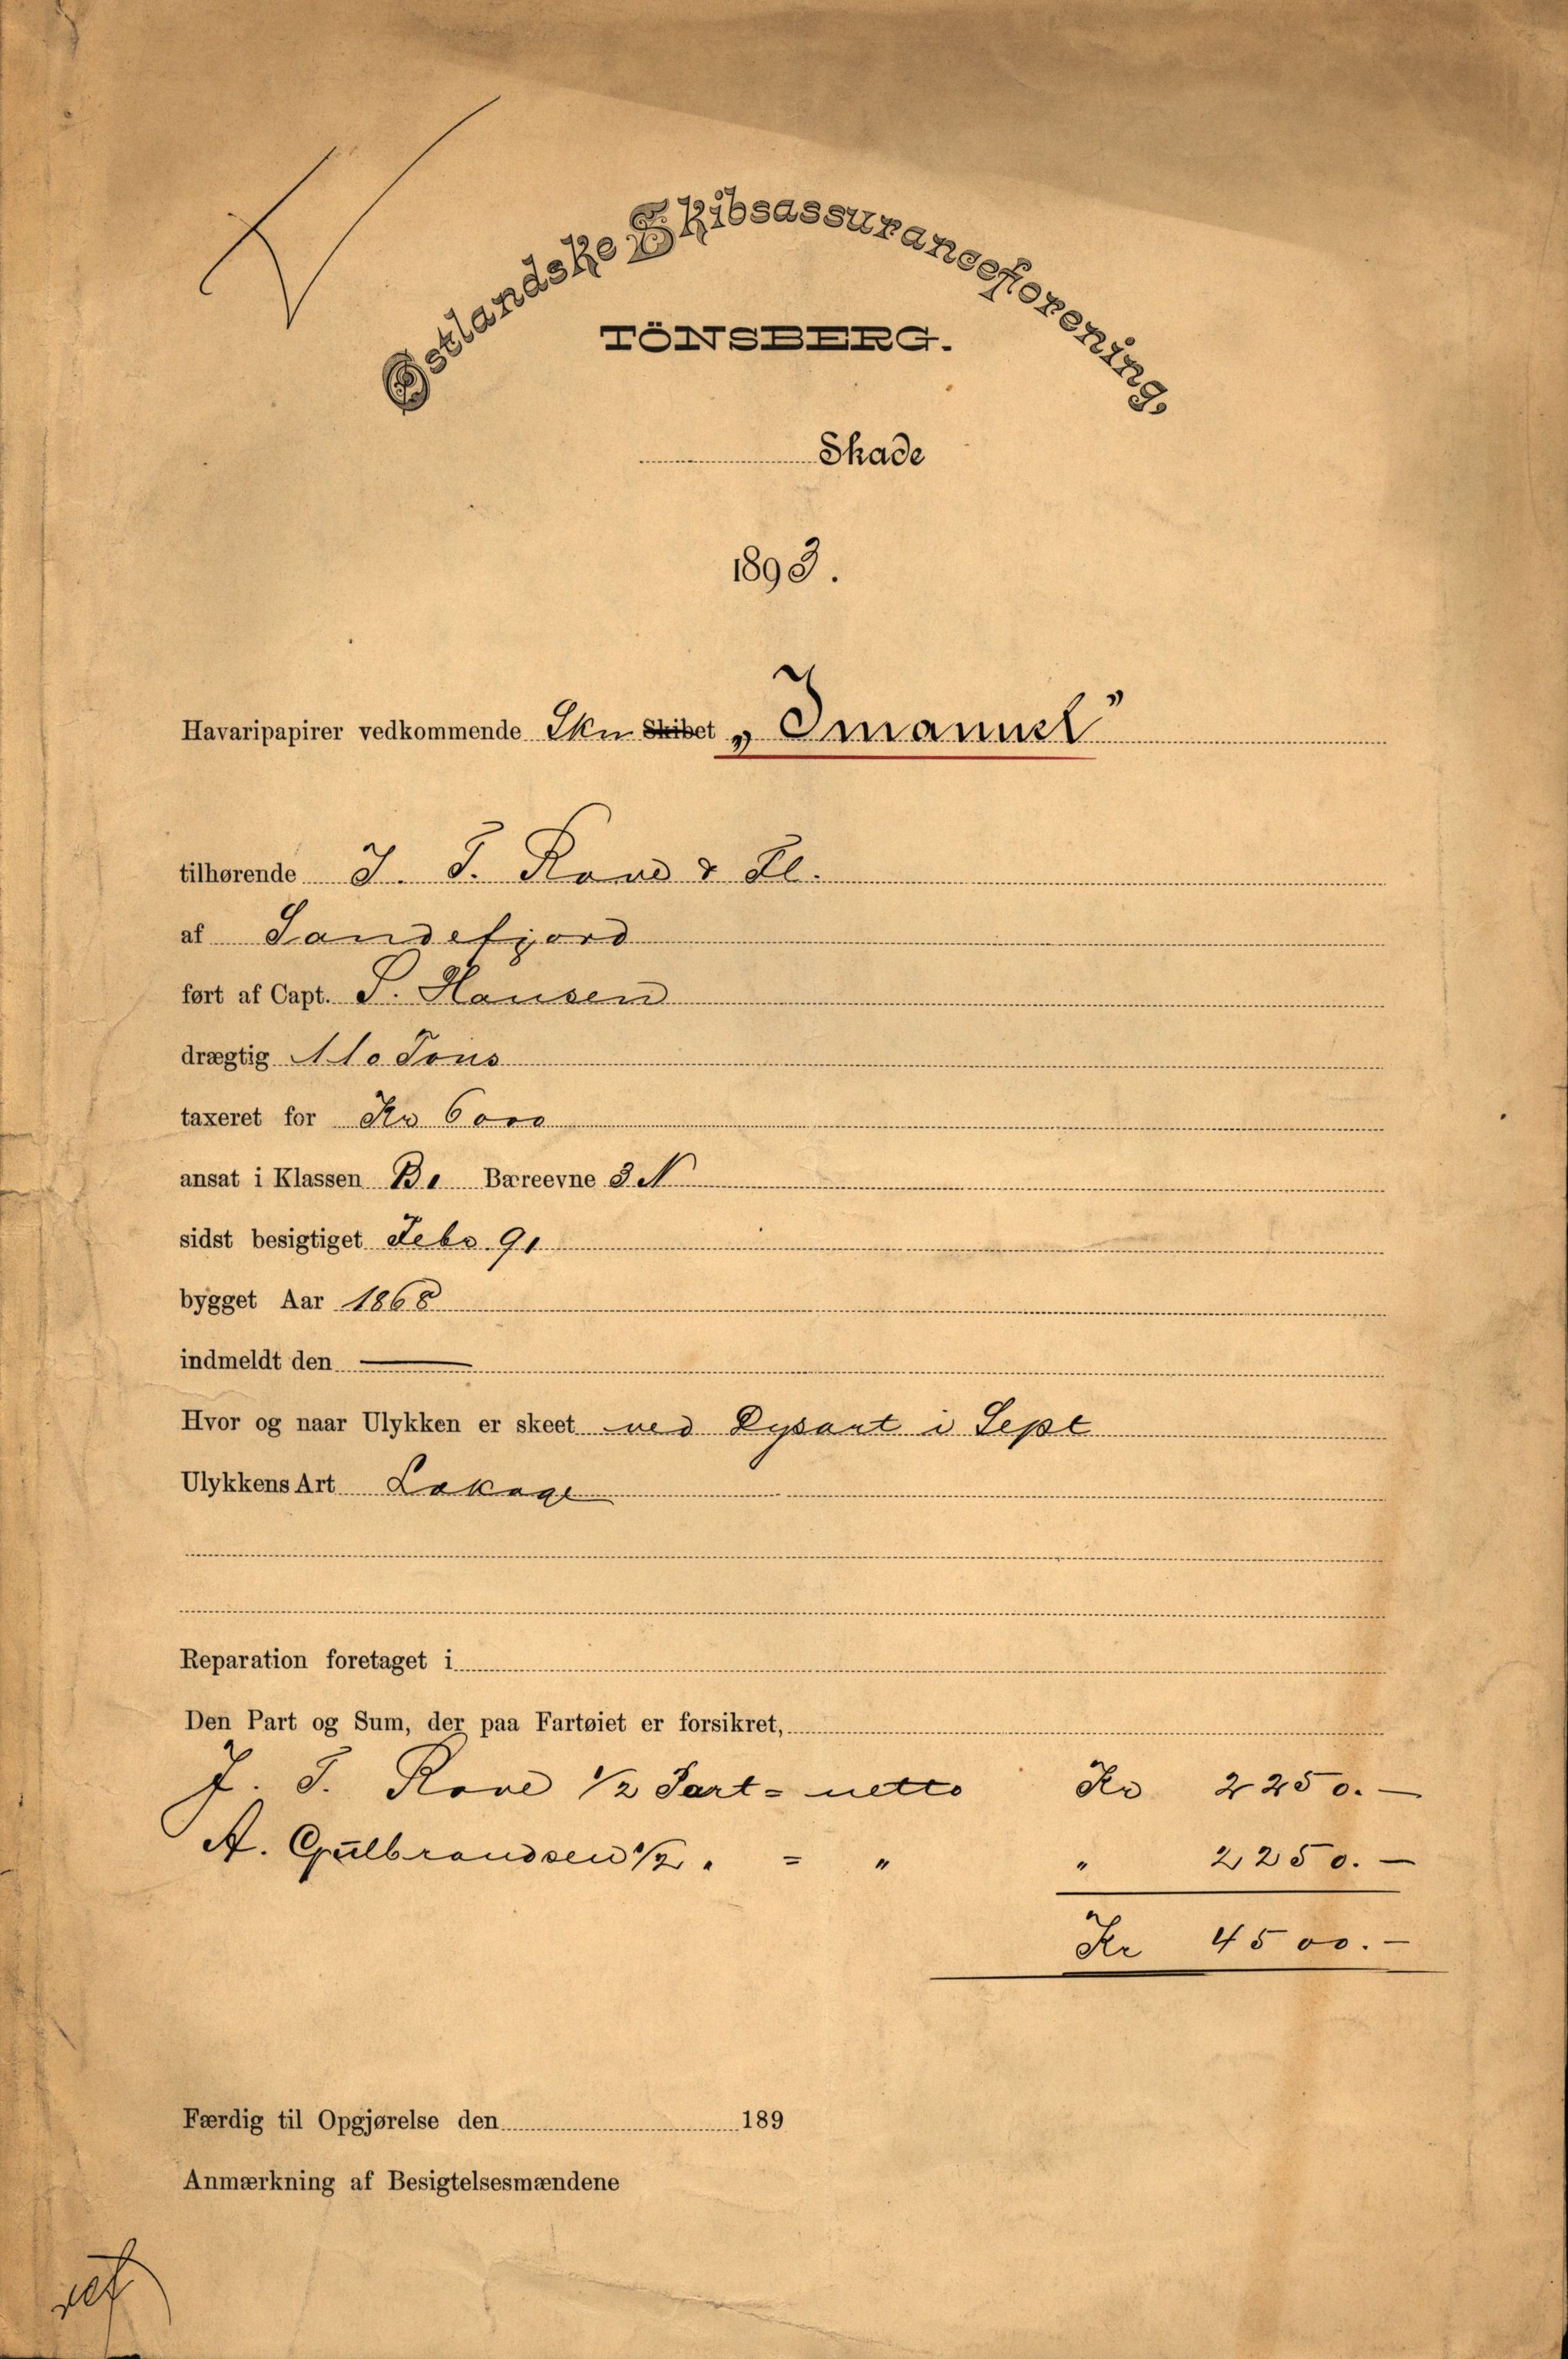 Østlandske Skibsassuranceforening,
TÖNSBERG.
Skade
1893.
Havaripapirer vedkommende Skn Skibet „Imanuel”
tilhørende J. T. Rove & Fl.
af Sandefjord
ført af Capt. S. Hansen
drægtig 110 Tons
taxeret for Kr 6000
ansat i Klassen B1 Bæreevne 3 N
sidst besigtiget Febr. 91
bygget Aar 1868
indmeldt den —
Hvor og naar Ulykken er skeet ved Dysart i Sept
Ulykkens Art Lækage
Reparation foretaget i
Den Part og Sum, der paa Fartøiet er forsikret,
J. T. Rove 1/2 Part = netto Kr 2250.—
A. Gulbrandsen 1/2 " = " " 2250.—
Kr 4500.—
Færdig til Opgjørelse den 189
Anmærkning af Besigtelsesmændene